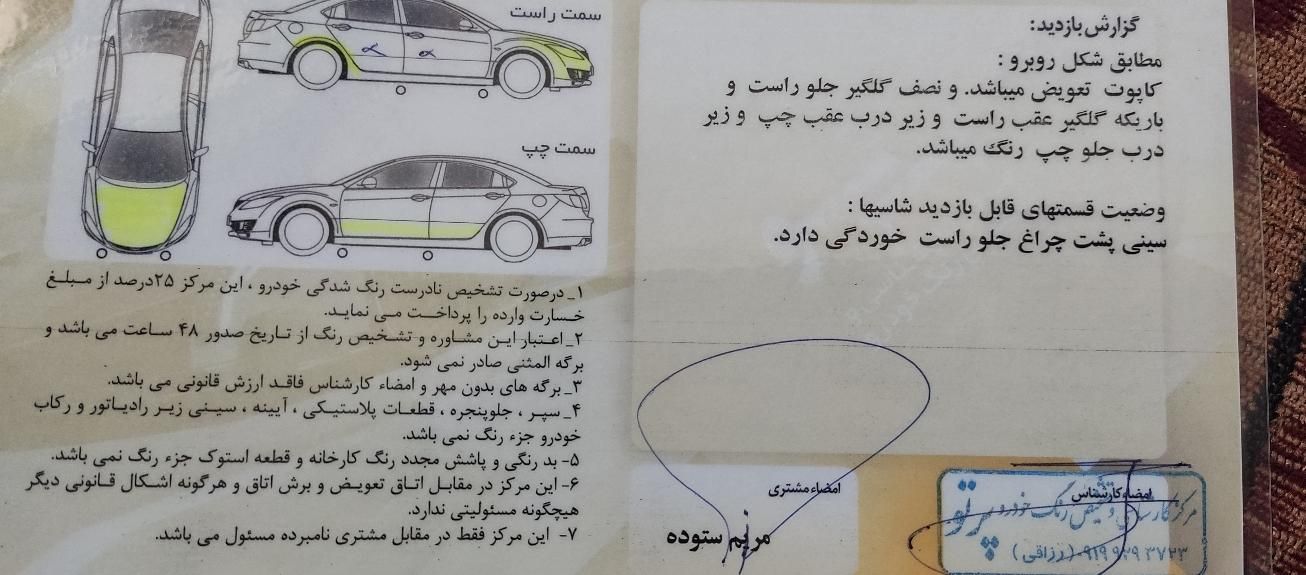 گزارش بازدید:
مطابق شکل روبرو :
کاپوت تعویض میباشد. و نصف گلگیر جلو راست و
باریکه گلگیر عقب راست و زیر درب عقب چپ و زیر
درب جلو چپ رنگ میباشد.
وضعیت قسمتهای قابل بازدید شاسیها :
سینی پشت چراغ جلو راست خوردگی دارد.
سمت راست
سمت چپ
۱_ درصورت تشخیص نادرست رنگ شدگی خودرو ، این مرکز ۲۵درصد از مبلغ
خسارت وارده را پرداخت می نماید.
۲_ اعتبار این مشاوره و تشخیص رنگ از تاریخ صدور ۴۸ ساعت می باشد و
برگه المثنی صادر نمی شود.
۳_ برگه های بدون مهر و امضاء کارشناس فاقد ارزش قانونی می باشد.
۴_ سپر ، جلوپنجره ، قطعات پلاستیکی ، آیینه ، سینی زیر رادیاتور و رکاب
خودرو جزء رنگ نمی باشد.
۵- بد رنگی و پاشش مجدد رنگ کارخانه و قطعه استوک جزء رنگ نمی باشد.
۶- این مرکز در مقابل اتاق تعویض و برش اتاق و هرگونه اشکال قانونی دیگر
هیچگونه مسئولیتی ندارد.
۷- این مرکز فقط در مقابل مشتری نامبرده مسئول می باشد.
امضاء مشتری
مریم ستوده
امضاء کارشناس
مرکز کارشناسی و تشخیص رنگ خودرو پرتو
۰۹۱۹ ۹۳۹ ۳۷۲۳ (رزاقی)